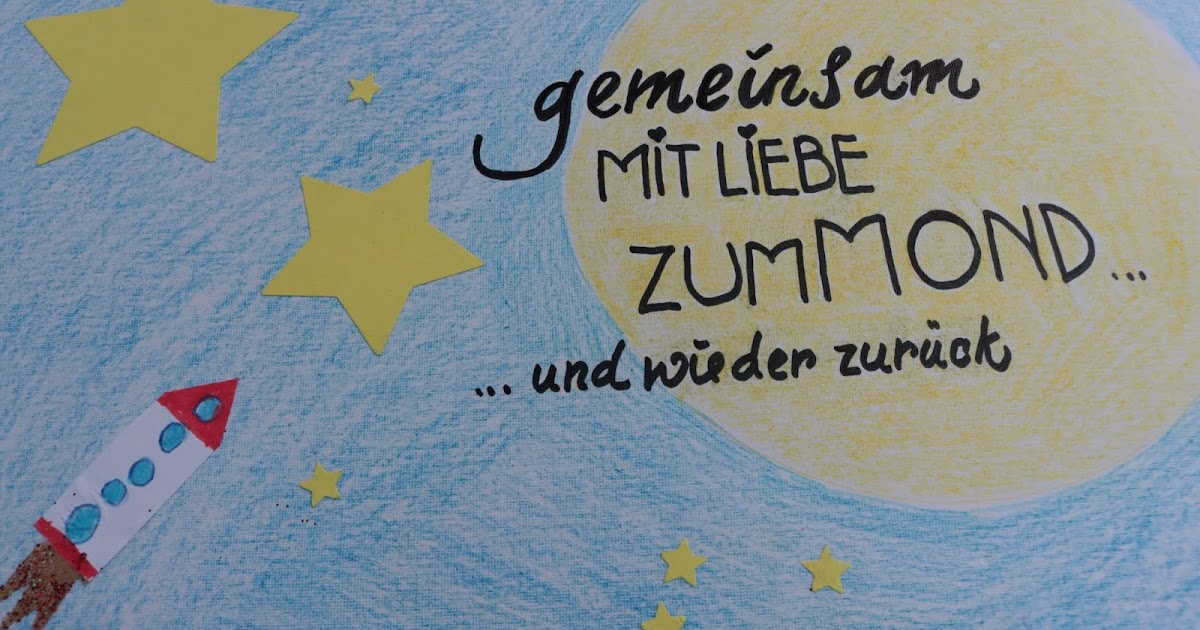 gemeinsam
MIT LIEBE
ZUM MOND...
... und wieder zurück